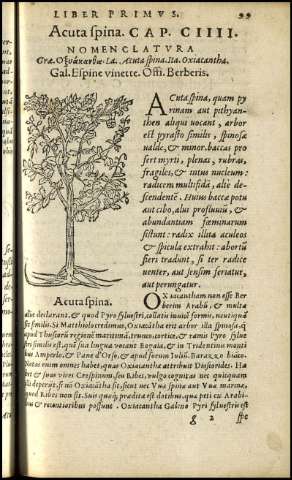 LIBER PRIMVS. 99
Acuta spina. CAP. CIIII.
NOMENCLATVRA
Græ. Οξυάκανθα. La. Acuta spina. Ita. Oxiacantha.
Gal. Espine vinette. Offi. Berberis.
ACuta spina, quam py
rinam aut pityan-
then aliqui vocant, arbor
est pyrasto similis, spinosa
ualde, & minor. baccas pro
fert myrti, plenas, rubras,
fragiles, & intus nucleum:
radicem multifidā, altè de-
scendentē. Huius bacca potu
aut cibo, alui profluuiū, &
abundantiam fœminarum
sistunt: radix illita aculeos
& spicula extrahit: abortū
fieri tradunt, si ter radice
uenter, aut sensim feriatur,
aut perungatur.
Acuta spina.
OXiacantham non esse Ber
berim Arabū, & nulta
aliæ declarant, & quod Pyro syluestri, collatiu inuicē formis, neutiquā
sit similis. Si Matthiolo credimus, Oxiacātha erit arbor illa spinosa,
quod Thusciæ regione maritima, trunco, cortice, & ramis Pyro sylue
stri similis est, quā sua lingua vocant Bogaia, & in Tridentinis monti
bus Amperlo, & Pane d'Orso, & apud forum Iulii. Baraxxo biāco.
Notas enim omnes habet, quas Oxiacātha attribuit Dioscorides. Ha
pet & suæ vires Crespinum, seu Ribes, vulgo cognitas nec quicquam
ei deperit, si nō Oxiacātha sit, seut nec Vua spina aut Vua marina,
quod Ribes non sit. Suis quoq; prædita est dotibus, qua peti cu Arabi-
bus & recentioribus possunt. Oxiacantha Galeno Pyri syluestris est
g 2